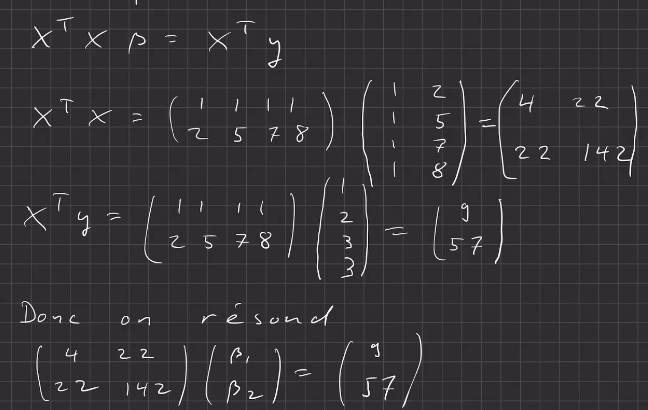 X^T X β = X^T y
X^T X = (1 1 1 1; 2 5 7 8) (1 2; 1 5; 1 7; 1 8) = (4 22; 22 142)
X^T y = (1 1 1 1; 2 5 7 8) (1; 2; 3; 3) = (9; 57)
Donc on résond
(4 22; 22 142) (β1; β2) = (9; 57)